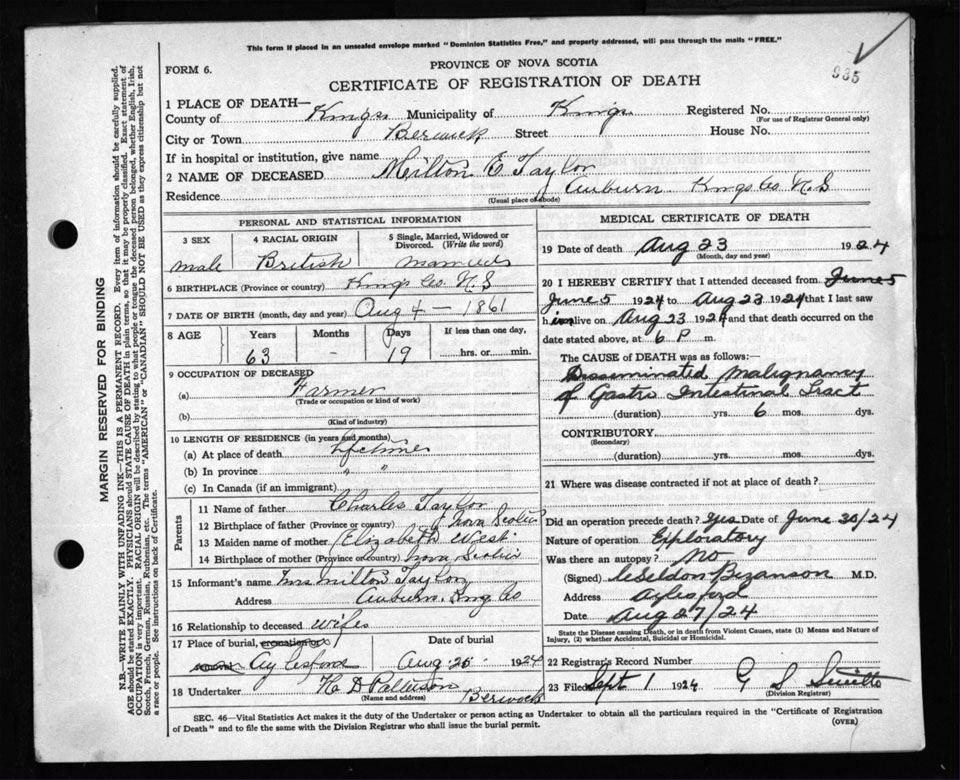 This form if placed in an unsealed envelope marked "Dominion Statistics Free," and properly addressed, will pass through the mails "FREE."
FORM 6.
PROVINCE OF NOVA SCOTIA
CERTIFICATE OF REGISTRATION OF DEATH
935
1 PLACE OF DEATH—
County of Kings Municipality of Kings Registered No.
(For use of Registrar General only)
City or Town Berwick Street House No.
If in hospital or institution, give name
2 NAME OF DECEASED Milton E Taylor
Residence Auburn Kings Co N.S
(Usual place of abode)
PERSONAL AND STATISTICAL INFORMATION
3 SEX 4 RACIAL ORIGIN 5 Single, Married, Widowed or Divorced. (Write the word)
male British married
6 BIRTHPLACE (Province or country) Kings Co. N S
7 DATE OF BIRTH (month, day and year) Aug 4 - 1861
8 AGE Years Months Days If less than one day,
63 - 19 hrs. or min.
9 OCCUPATION OF DECEASED
(a) Farmer
(Trade or occupation or kind of work)
(b)
(Kind of industry)
10 LENGTH OF RESIDENCE (in years and months)
(a) At place of death lifetime
(b) In province " "
(c) In Canada (if an immigrant)
Parents
11 Name of father Charles Taylor
12 Birthplace of father (Province or country) Nova Scotia
13 Maiden name of mother Elizabeth West
14 Birthplace of mother (Province or country) Nova Scotia
15 Informant's name Mrs Milton Taylor
Address Auburn, Kings Co
16 Relationship to deceased wife
17 Place of burial, cremation or Date of burial
Aylesford Aug 25 1924
18 Undertaker H D Patterson Berwick
(Name and address)
MEDICAL CERTIFICATE OF DEATH
19 Date of death Aug 23 1924
(Month, day and year)
20 I HEREBY CERTIFY that I attended deceased from June 5
June 5 1924 to Aug 23 1924 that I last saw
him alive on Aug 23 1924 and that death occurred on the
date stated above, at 6 P m.
The CAUSE OF DEATH was as follows:
Disseminated Malignancy
of Gastro Intestinal Tract
(duration) yrs. 6 mos. dys.
CONTRIBUTORY
(Secondary)
(duration) yrs. mos. dys.
21 Where was disease contracted if not at place of death?
Did an operation precede death? Yes Date of June 30/24
Nature of operation Exploratory
Was there an autopsy? No
(Signed) Seldon Bezanson M.D.
Address Aylesford
Date Aug 27/24
State the Disease causing Death, or in death from Violent Causes, state (1) Means and Nature of Injury, (2) whether Accidental, Suicidal or Homicidal.
22 Registrar's Record Number
23 Filed Sept 1 1924 G S
(Division Registrar)
SEC. 46—Vital Statistics Act makes it the duty of the Undertaker or person acting as Undertaker to obtain all the particulars required in the "Certificate of Registration
of Death" and to file the same with the Division Registrar who shall issue the burial permit.
(OVER)
MARGIN RESERVED FOR BINDING
N.B.—WRITE PLAINLY WITH UNFADING INK—THIS IS A PERMANENT RECORD. Every item of information should be carefully supplied.
AGE should be stated EXACTLY. PHYSICIANS should STATE CAUSE OF DEATH in plain terms, so that it may be properly classified. Exact statement of
OCCUPATION is very important. RACIAL ORIGIN will be described by stating to what people or tongue the deceased person belonged, whether English, Irish,
Scotch, French, German, Russian, Ruthenian, etc. The terms "AMERICAN" or "CANADIAN" SHOULD NOT BE USED as they express citizenship but not
a race or people. See instructions on back of Certificate.